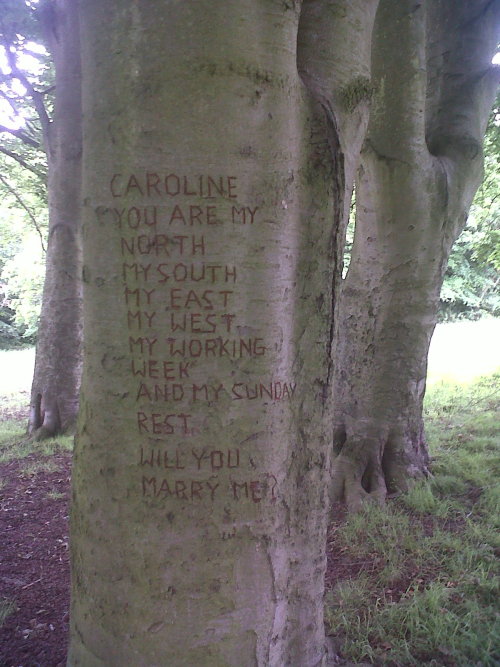 CAROLINE
YOU ARE MY
NORTH
MY SOUTH
MY EAST
MY WEST
MY WORKING
WEEK
AND MY SUNDAY
REST
WILL YOU
MARRY ME?